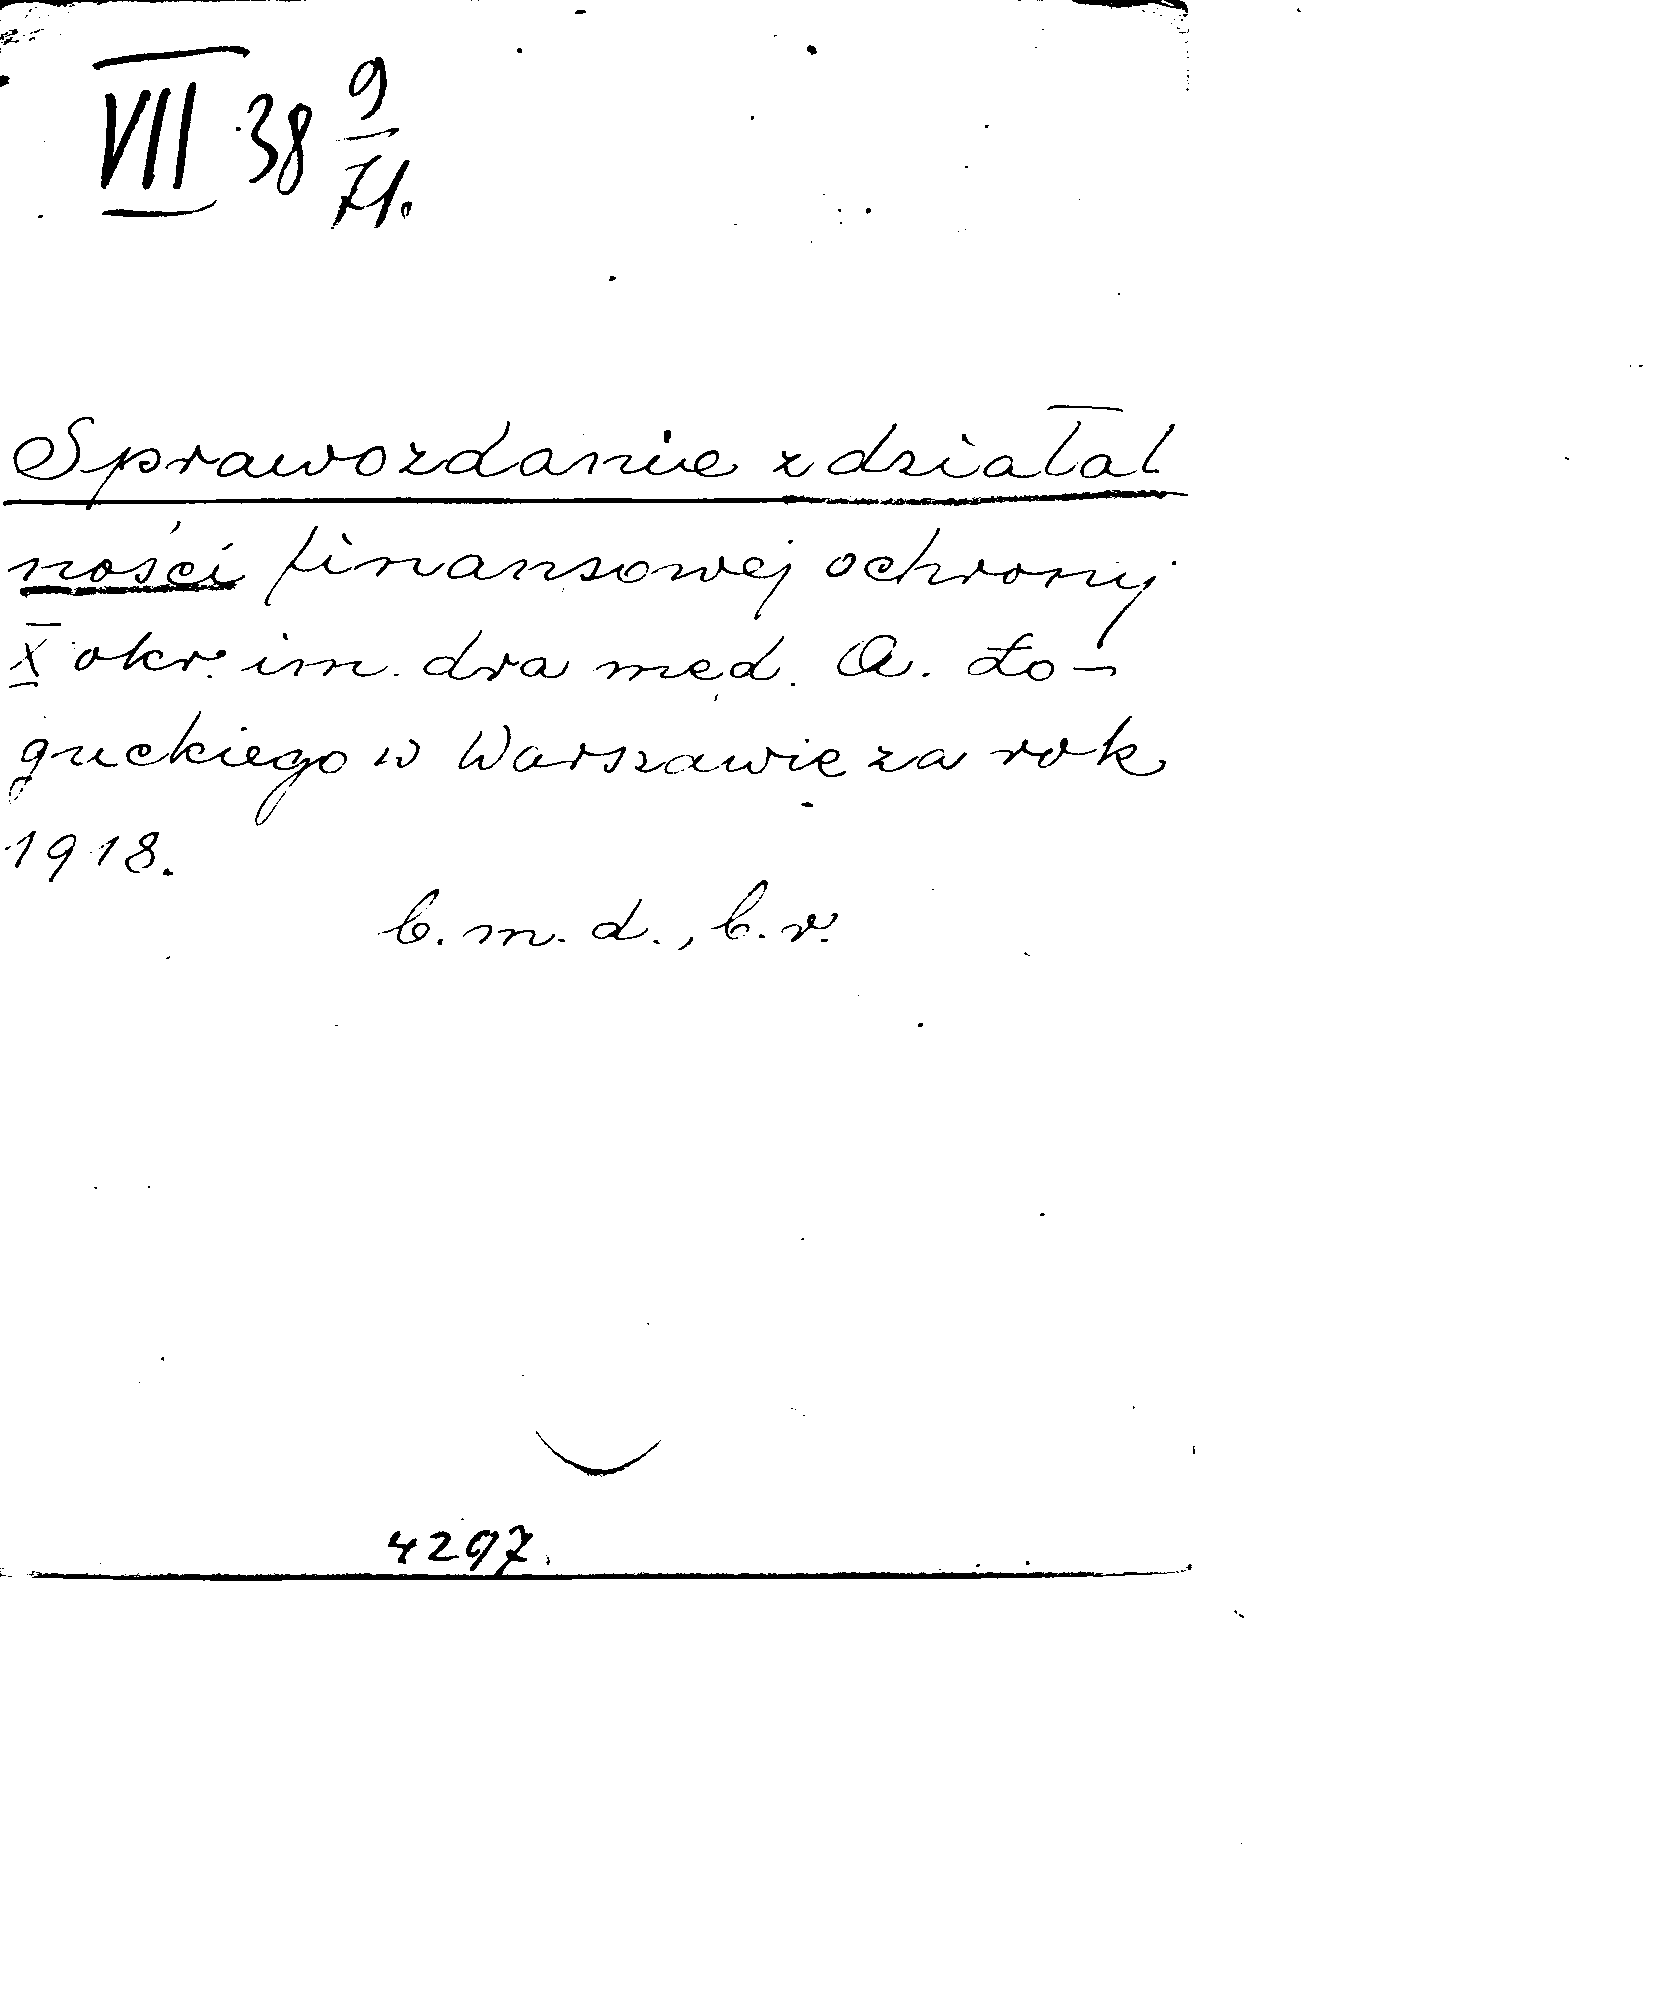 VII 38 9/71.
Sprawozdanie z działal
ności finansowej ochrony
X okr. im. dra med. A. Ło-
guckiego w Warszawie za rok
1918.
b. m. d., b. r.
4297.